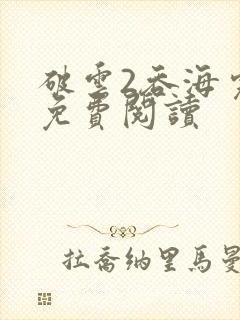 破雲2吞海
免費閱讀
拉喬納里馬曼